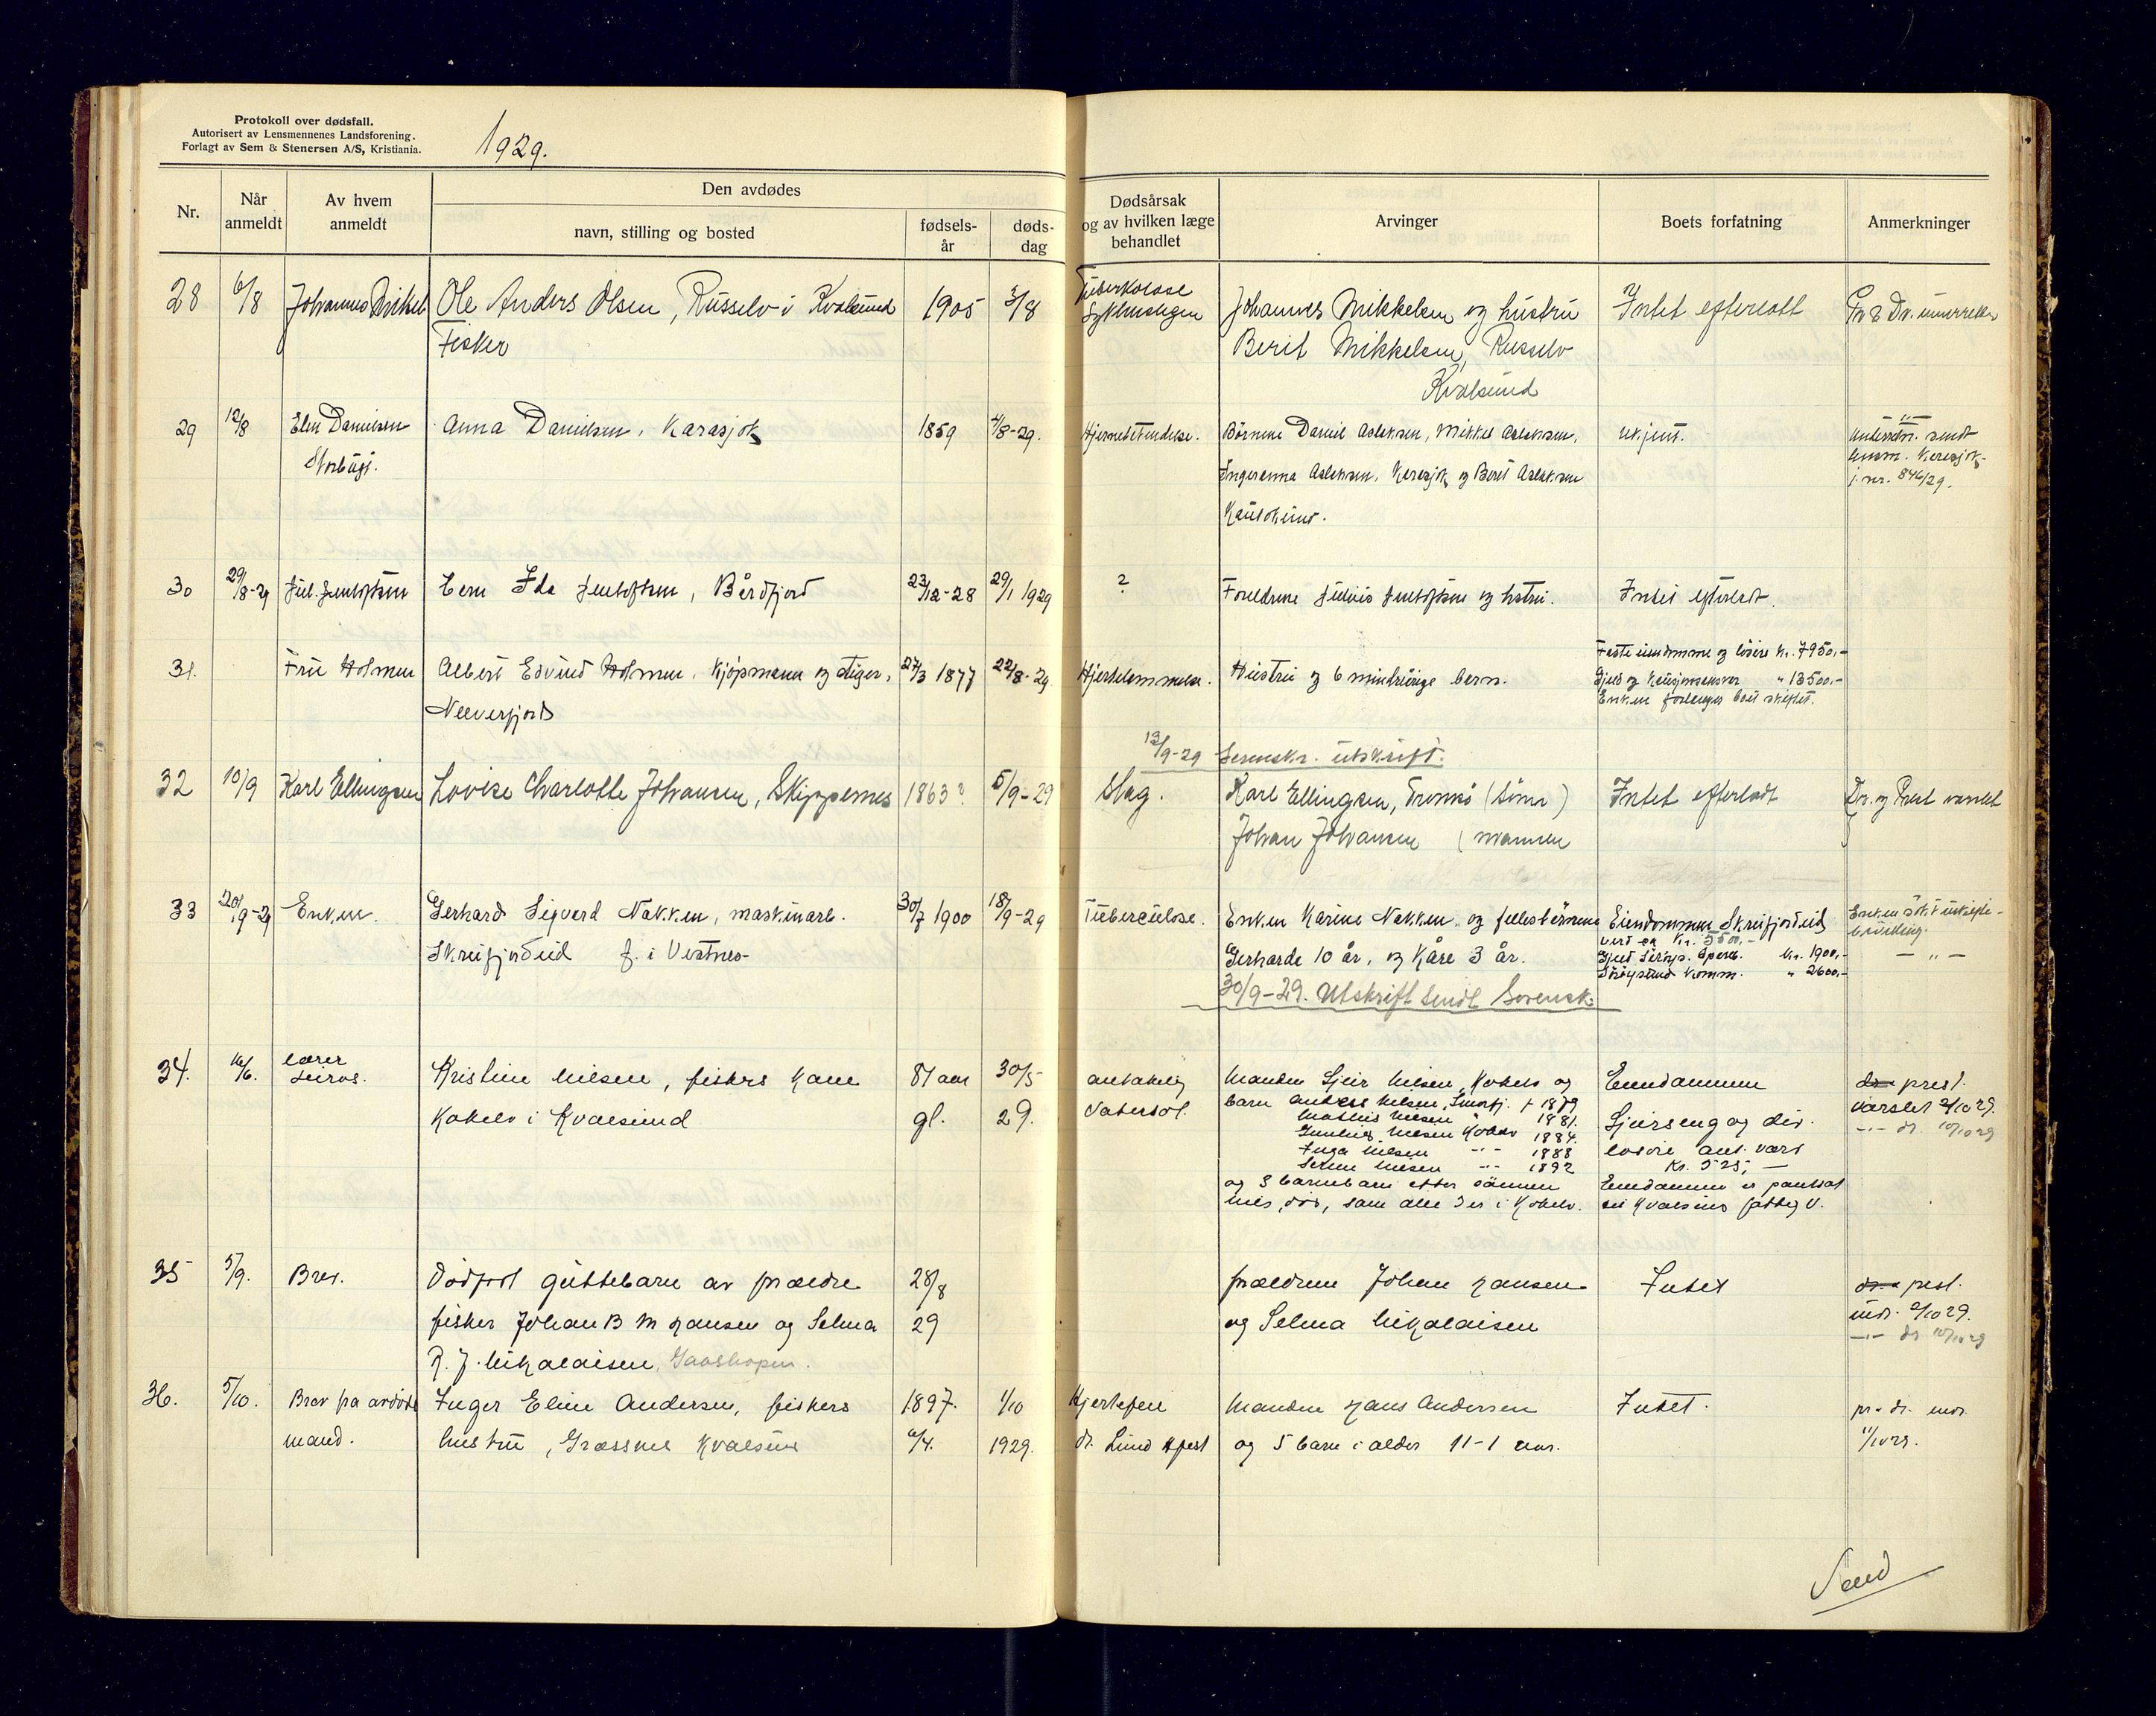 Protokoll over dødsfall.
Autorisert av Lensmennenes Landsforening.
Forlagt av Sem & Stenersen A/S, Kristiania.
1929.
Nr.
Når anmeldt
Av hvem anmeldt
Den avdødes
navn, stilling og bosted
fødselsår
dødsdag
Dødsårsak og av hvilken læge behandlet
Arvinger
Boets forfatning
Anmerkninger
28 6/8 Johannes Mikkel Ole Anders Olsen, Russelv i Kvalsund 1905 3/8 Tuberkolose Johannes Mikkelsen og hustru Intet efterlatt
Fisker Berit Mikkelsen, Russelv
Kvalsund
29 12/8 Elen Danielsen Anna Danielsen, Karasjok 1859 4/8-29. Hjernebetendelse. Børnene Daniel Aslaksen, Mikkel Aslaksen, ukjent. — " —
Storbugt. Ingeranna Aslaksen, Karasjok og Berit Aslaksen underretn. sendt
Kautokeino. lensm. Karasjok
j.nr. 846/29.
30 29/8-29 Jul. Jentoftsen Ida Jentoftsen, Bårdfjord 23/12-28 29/1 1929 ? Foreldrene Julius Jentoftsen og hstru. Intet efterladt.
31. Fru Holmen Albert Edvind Holmen, kjøpmann og 27/3 1877 22/8-29 Hjertelammelse. Hustru og 6 mindreårige barn. Faste eiendomme og løsøre kr. 7950,-
Neverfjord Gjeld og " 13500,-
Enken forlanger boet skiftet.
13/9-29 Sorenskr. utskrift.
32 10/9 Karl Ellingsen Lovise Charlotte Johansen, Skippernes 1863? 5/9-29 Slag. Karl Ellingsen, Tromsø (sønn) Intet efterladt Dr. og Prest varslet
Johan Johansen (mannen
33 20/9-29 Enken. Gerhard Sigverd Nakken, maskinarb. 30/7 1900 18/9-29 Tuberculose. Enken Karine Nakken og fellesbørnene Eiendommen Skreifjordeid
Skreifjordeid f. i Vestnes Gerharde 10 år, og Kåre 3 år. verd ca kr. 5500,-
Gjeld Sørøys. Spareb. kr. 1900,- — " —
Sørøysund Komm. " 2600,-
30/9-29. Utskrift sendt Sorensk.
34. 16/6. lærer Kristine Nilsen, fiskers kone 81 aar 30/5 antakelig Manden Sjeir Nilsen, Kokelv og Eiendommen dr prest
Kokelv i Kvalsund gl. 29. barn Anders Nilsen, Smørfj. f 1879 varslet 2/10 29.
Mathis Nilsen " 1881. Sjeirseng og div.
Nilsen Kokelv 1884. -"- dr. 10/10 29
Inga Nilsen -"- 1888 løsøre ant. værd
Nilsen -"- 1892 Kr. 525,—
og 3 barnebarn etter sønnen Eiendommen er pantsat
Nils, død, som alle 3 er i Kokelv. til Kvalsund fattigv.
35 5/9. Brev. Dødfødt guttebarn av foreldre 28/8 foreldrene Johan Hansen Intet dr. prest.
fisker Johan B M Hansen og Selma 29 og Selma Nikolaisen und. 2/10 29.
R. J. Nikolaisen, -"- dr 10/10 29
36. 5/10. Brev fra avdødes Inger Eline Andersen, fiskers 1897. 1/10 Hjertefeil Manden Hans Andersen Intet. pr. dr. und.
mand. hustru, Græssnes Kvalsund 6/4. 1929. dr. Lund Hfest og 5 barn i alder 11-1 aar. 11/10 29.